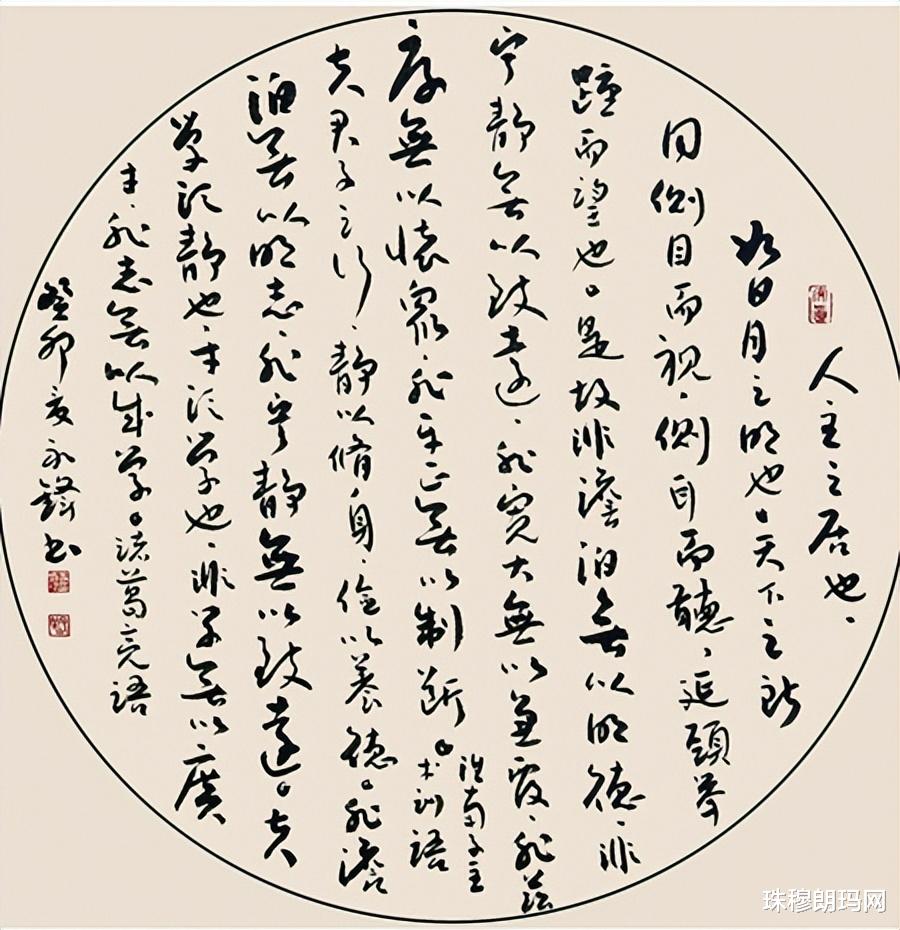 人主之居也、
如日月之明也。天下之所
同側目而視、側耳而聽、延頸舉
踵而望也。是故非澹泊無以明德、非
寧靜無以致遠、非寬大無以兼覆、非慈
厚無以懷眾、非平正無以制斷。淮南子主
術訓語
夫君子之行、靜以脩身、儉以養德。非澹
泊無以明志、非寧靜無以致遠。夫
學須靜也、才須學也、非學無以廣
才、非志無以成學。諸葛亮語
癸卯夏永鋒書
珠穆朗玛网